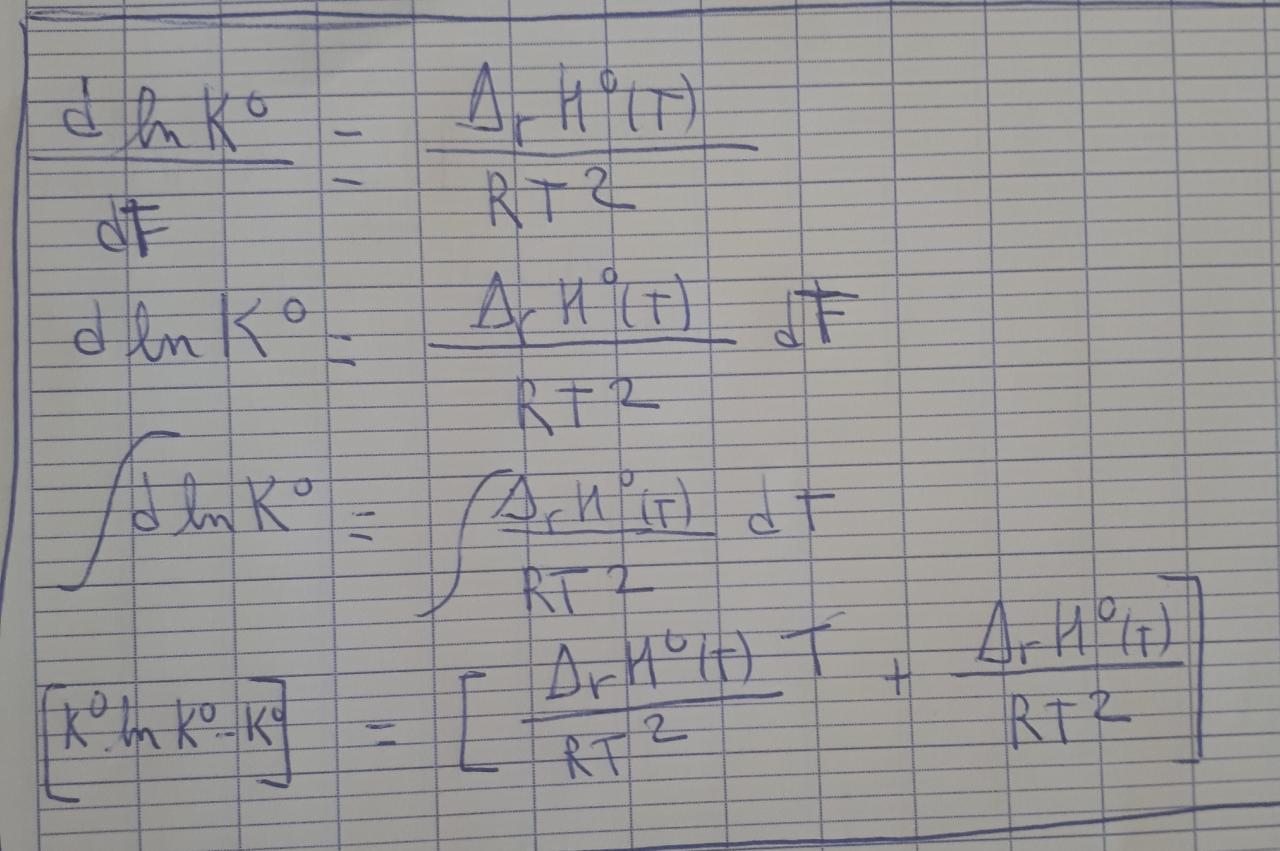 d ln K° / dT = Δr H°(T) / RT²
d ln K° = Δr H°(T) / RT² dT
∫ d ln K° = ∫ Δr H°(T) / RT² dT
[K° ln K° - K°] = [Δr H°(T) / RT² T + Δr H°(T) / RT²]